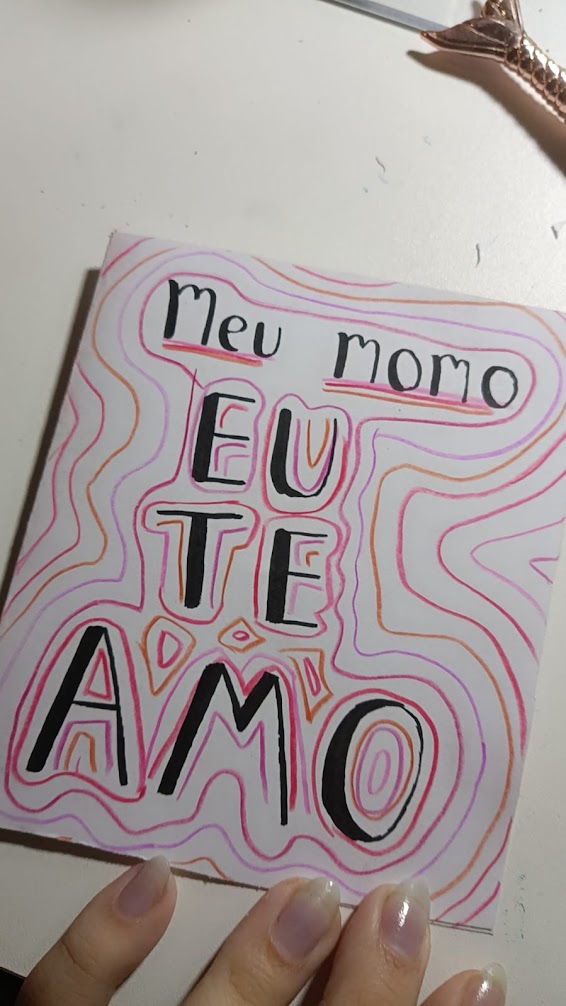 Meu momo
EU
TE
AMO